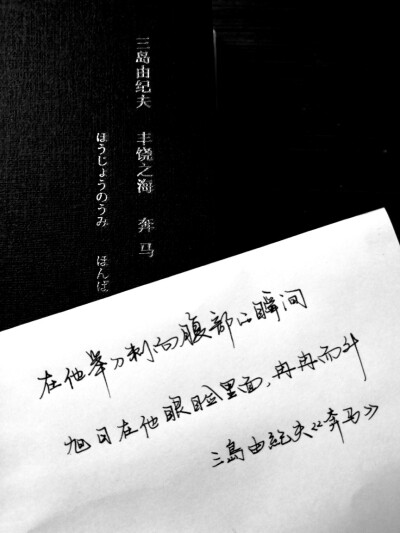 三岛由纪夫 丰饶之海 奔马
ほうじょうのうみ ほんば
在他举刀刺向腹部的瞬间
旭日在他眼睑里面，冉冉而升
三島由紀夫《奔马》